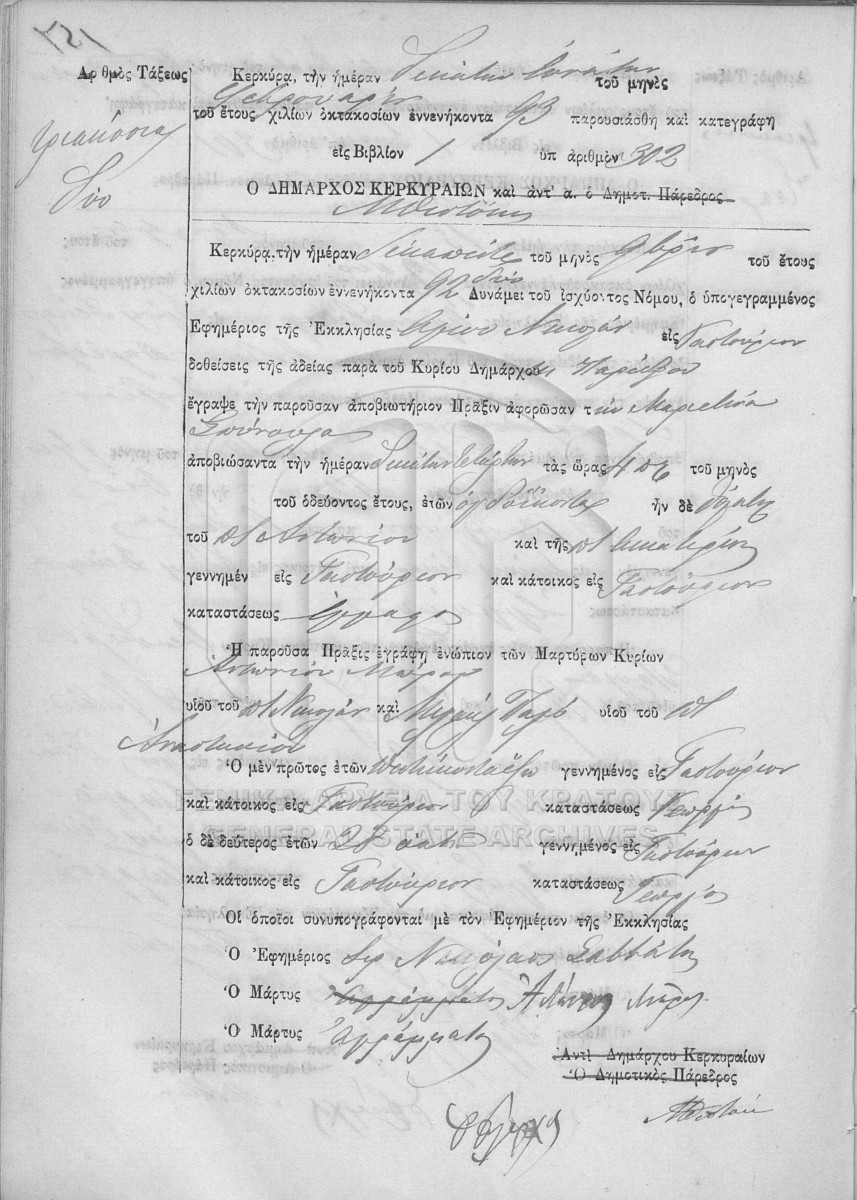 151
Αριθμὸς Τάξεως
τριακόσια
δύο
Κερκύρα, τὴν ἡμέραν δεκάτην ἐνάτην τοῦ μηνὸς
Φεβρουαρίου
τοῦ ἔτους χιλίων ὀκτακοσίων ἐννενήκοντα 93 παρουσιάσθη καὶ κατεγράφη
εἰς Βιβλίον 1 ὑπ ἀριθμὸν 302
Ο ΔΗΜΑΡΧΟΣ ΚΕΡΚΥΡΑΙΩΝ καὶ ἀντ' α. ὁ Δημοτ. Πάρεδρος
Κερκύρα, τὴν ἡμέραν δεκαπέντε τοῦ μηνὸς 9βρίου τοῦ ἔτους
χιλίων ὀκτακοσίων ἐννενήκοντα 92 δύο Δυνάμει τοῦ ἰσχύοντος Νόμου, ὁ ὑπογεγραμμένος
Εφημέριος τῆς Ἐκκλησίας Αγίου Νικολάου εἰς Γαστούριον
δοθείσεις τῆς ἀδείας παρὰ τοῦ Κυρίου Δημάρχου Παρέδρου
ἔγραψε τὴν παροῦσαν ἀποβιωτήριον Πρᾶξιν ἀφορῶσαν τ ὴν Μαρετίνα
Σπύνουλα
ἀποβιώσαντα τὴν ἡμέραν δεκάτην τετάρτην τὰς ὥρας 4 τοῦ μηνὸς
τοῦ ὁδεύοντος ἔτους, ἐτῶν ὀγδοήκοντα ἦν δὲ
τοῦ ποτὲ Αντωνίου καὶ τῆς ποτὲ Αικατερίνης
γεννημέν εἰς Γαστούριον καὶ κάτοικος εἰς Γαστούριον
καταστάσεως
Ἡ παροῦσα Πρᾶξις ἐγράφη ἐνώπιον τῶν Μαρτύρων Κυρίων
Αντωνίου Μάζαρ
υἱοῦ τοῦ ποτὲ Νικολάου καὶ υἱοῦ τοῦ ποτὲ
Αναστασίου
Ὁ μὲν πρῶτος ἐτῶν πεντήκοντα ἕξω γεννημένος εἰς Γαστούριον
καὶ κάτοικος εἰς Γαστούριον καταστάσεως Γεωργὸς
ὁ δὲ δεύτερος ἐτῶν 28 ὀκτώ γεννημένος εἰς Γαστούριον
καὶ κάτοικος εἰς Γαστούριον καταστάσεως Γεωργὸς
Οἱ ὁποῖοι συνυπογράφονται μὲ τὸν Ἐφημέριον τῆς Ἐκκλησίας
Ὁ Ἐφημέριος Νικόλαος Σαββάτης
Ὁ Μάρτυς ἀγράμματος
Ὁ Μάρτυς ἀγράμματος
Ἀντὶ Δημάρχου Κερκυραίων
Ὁ Δημοτικὸς Πάρεδρος
ΓΕΝΙΚΑ ΑΡΧΕΙΑ ΤΟΥ ΚΡΑΤΟΥΣ
GENERAL STATE ARCHIVES